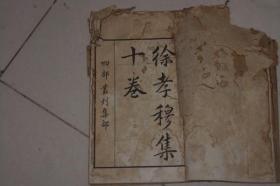 徐孝穆集
十卷
四部叢刊集部